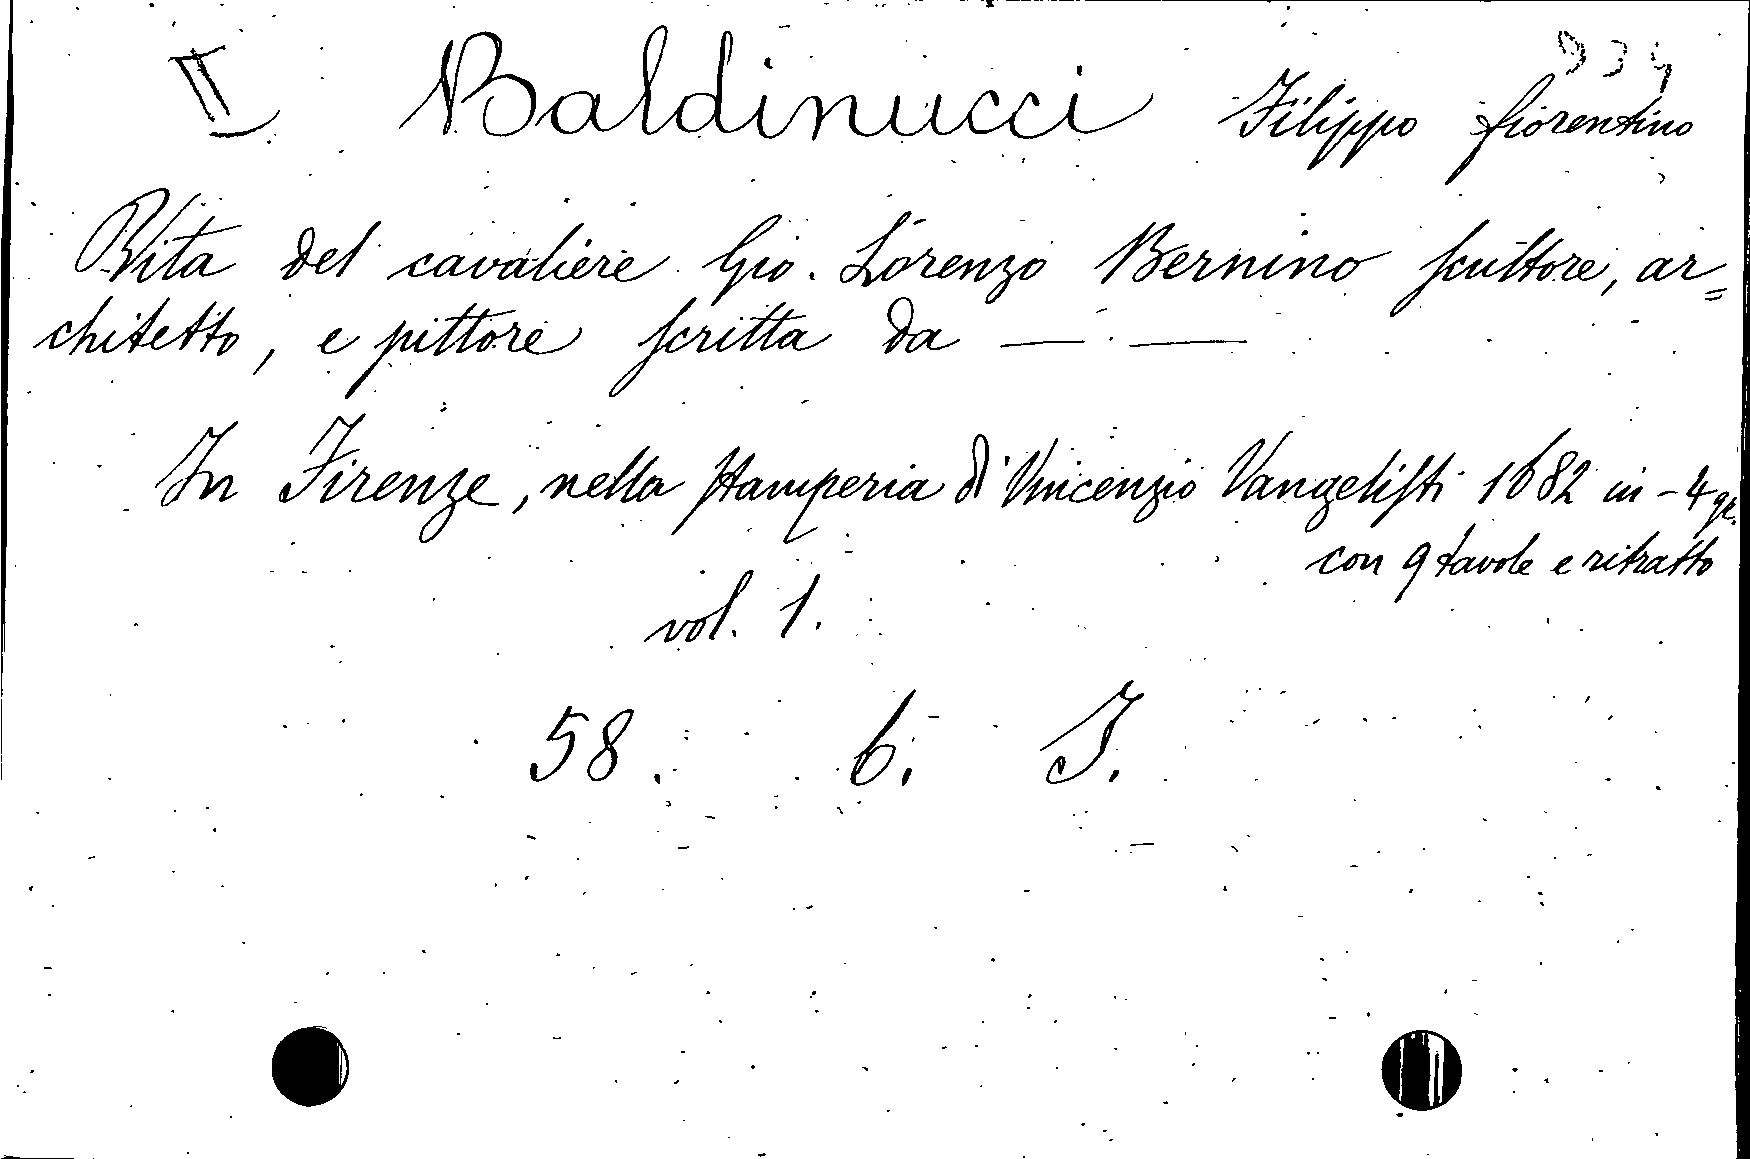 II Baldinucci Filippo fiorentino
934
Vita del cavaliere Gio. Lorenzo Bernino ſcultore, ar=
chitetto, e pittore ſcritta da — —
In Firenze, nella ſtamperia di Vincenzio Vangeliſti 1682 in-4 gr.
con 9 tavole e ritratto
vol. 1.
58. 6. I.